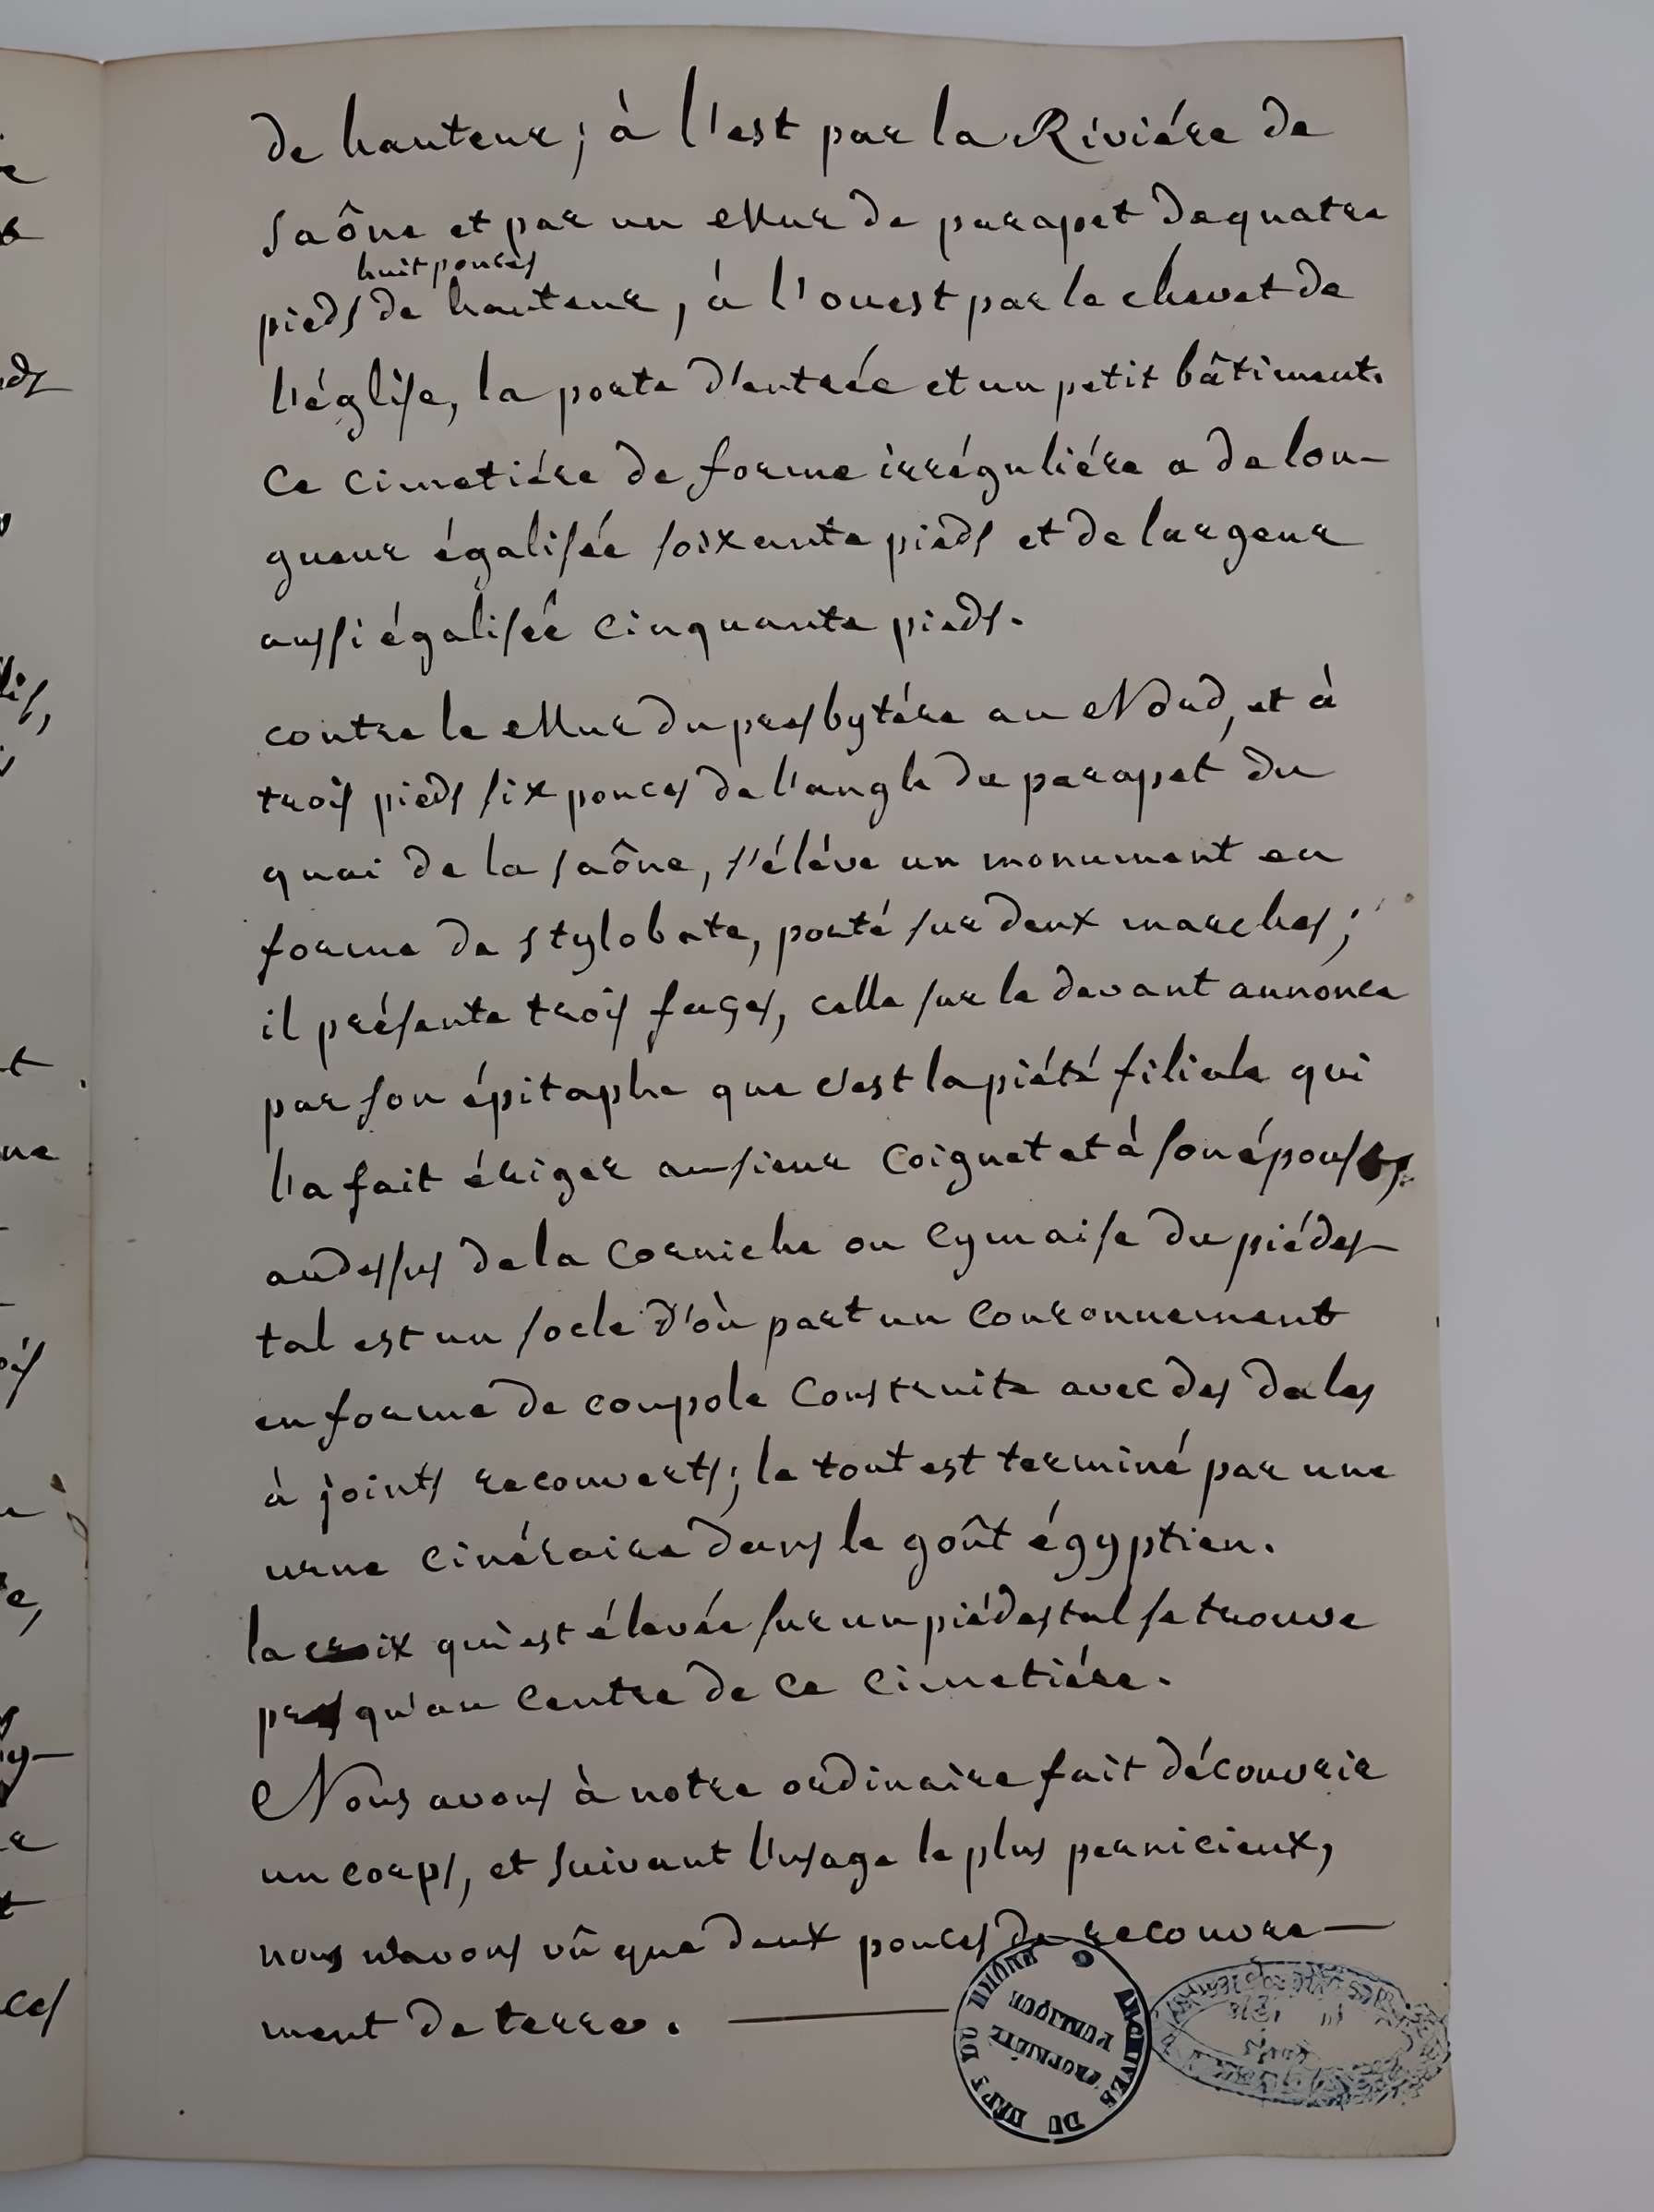 de hauteur; à l'est par la Riviére de
saône et par un Mur de parapet de quatre
huit pouces
pieds de hauteur, à l'ouest par le chevet de
l'église, la porte d'entrée et un petit bâtiment.
Ce cimetiére de forme irréguliére a de lon-
gueur égalisée soixante pieds et de largeur
aussi égalisée cinquante pieds.
contre le Mur du presbytére au Nord, et à
trois pieds six pouces de l'angle du parapet du
quai de la saône, s'éléve un monument en
forme de stylobate, porté sur deux marches;
il présente trois façes, celle sur le devant annonce
par son épitaphe que c'est la piété filiale qui
l'a fait ériger au sieur Coignet et à son épouse;
audessus de la Corniche ou Cymaise du piédes-
tal est un socle d'où part un Couronnement
en forme de coupole Construite avec des dales
à joints recouverts; le tout est terminé par une
urne Cinéraire dans le goût égyptien.
la croix qui est élevée sur un piédestal se trouve
presqu'au Centre de Ce Cimetiére.
Nous avons à notre ordinaire fait découvrir
un corps, et suivant l'usage le plus pernicieux,
nous n'avons vû que deux pouces de recouvre-
ment de terre.
ARCHIVES DU DÉPT DU RHÔNE
PROPRIÉTÉ
PUBLIQUE